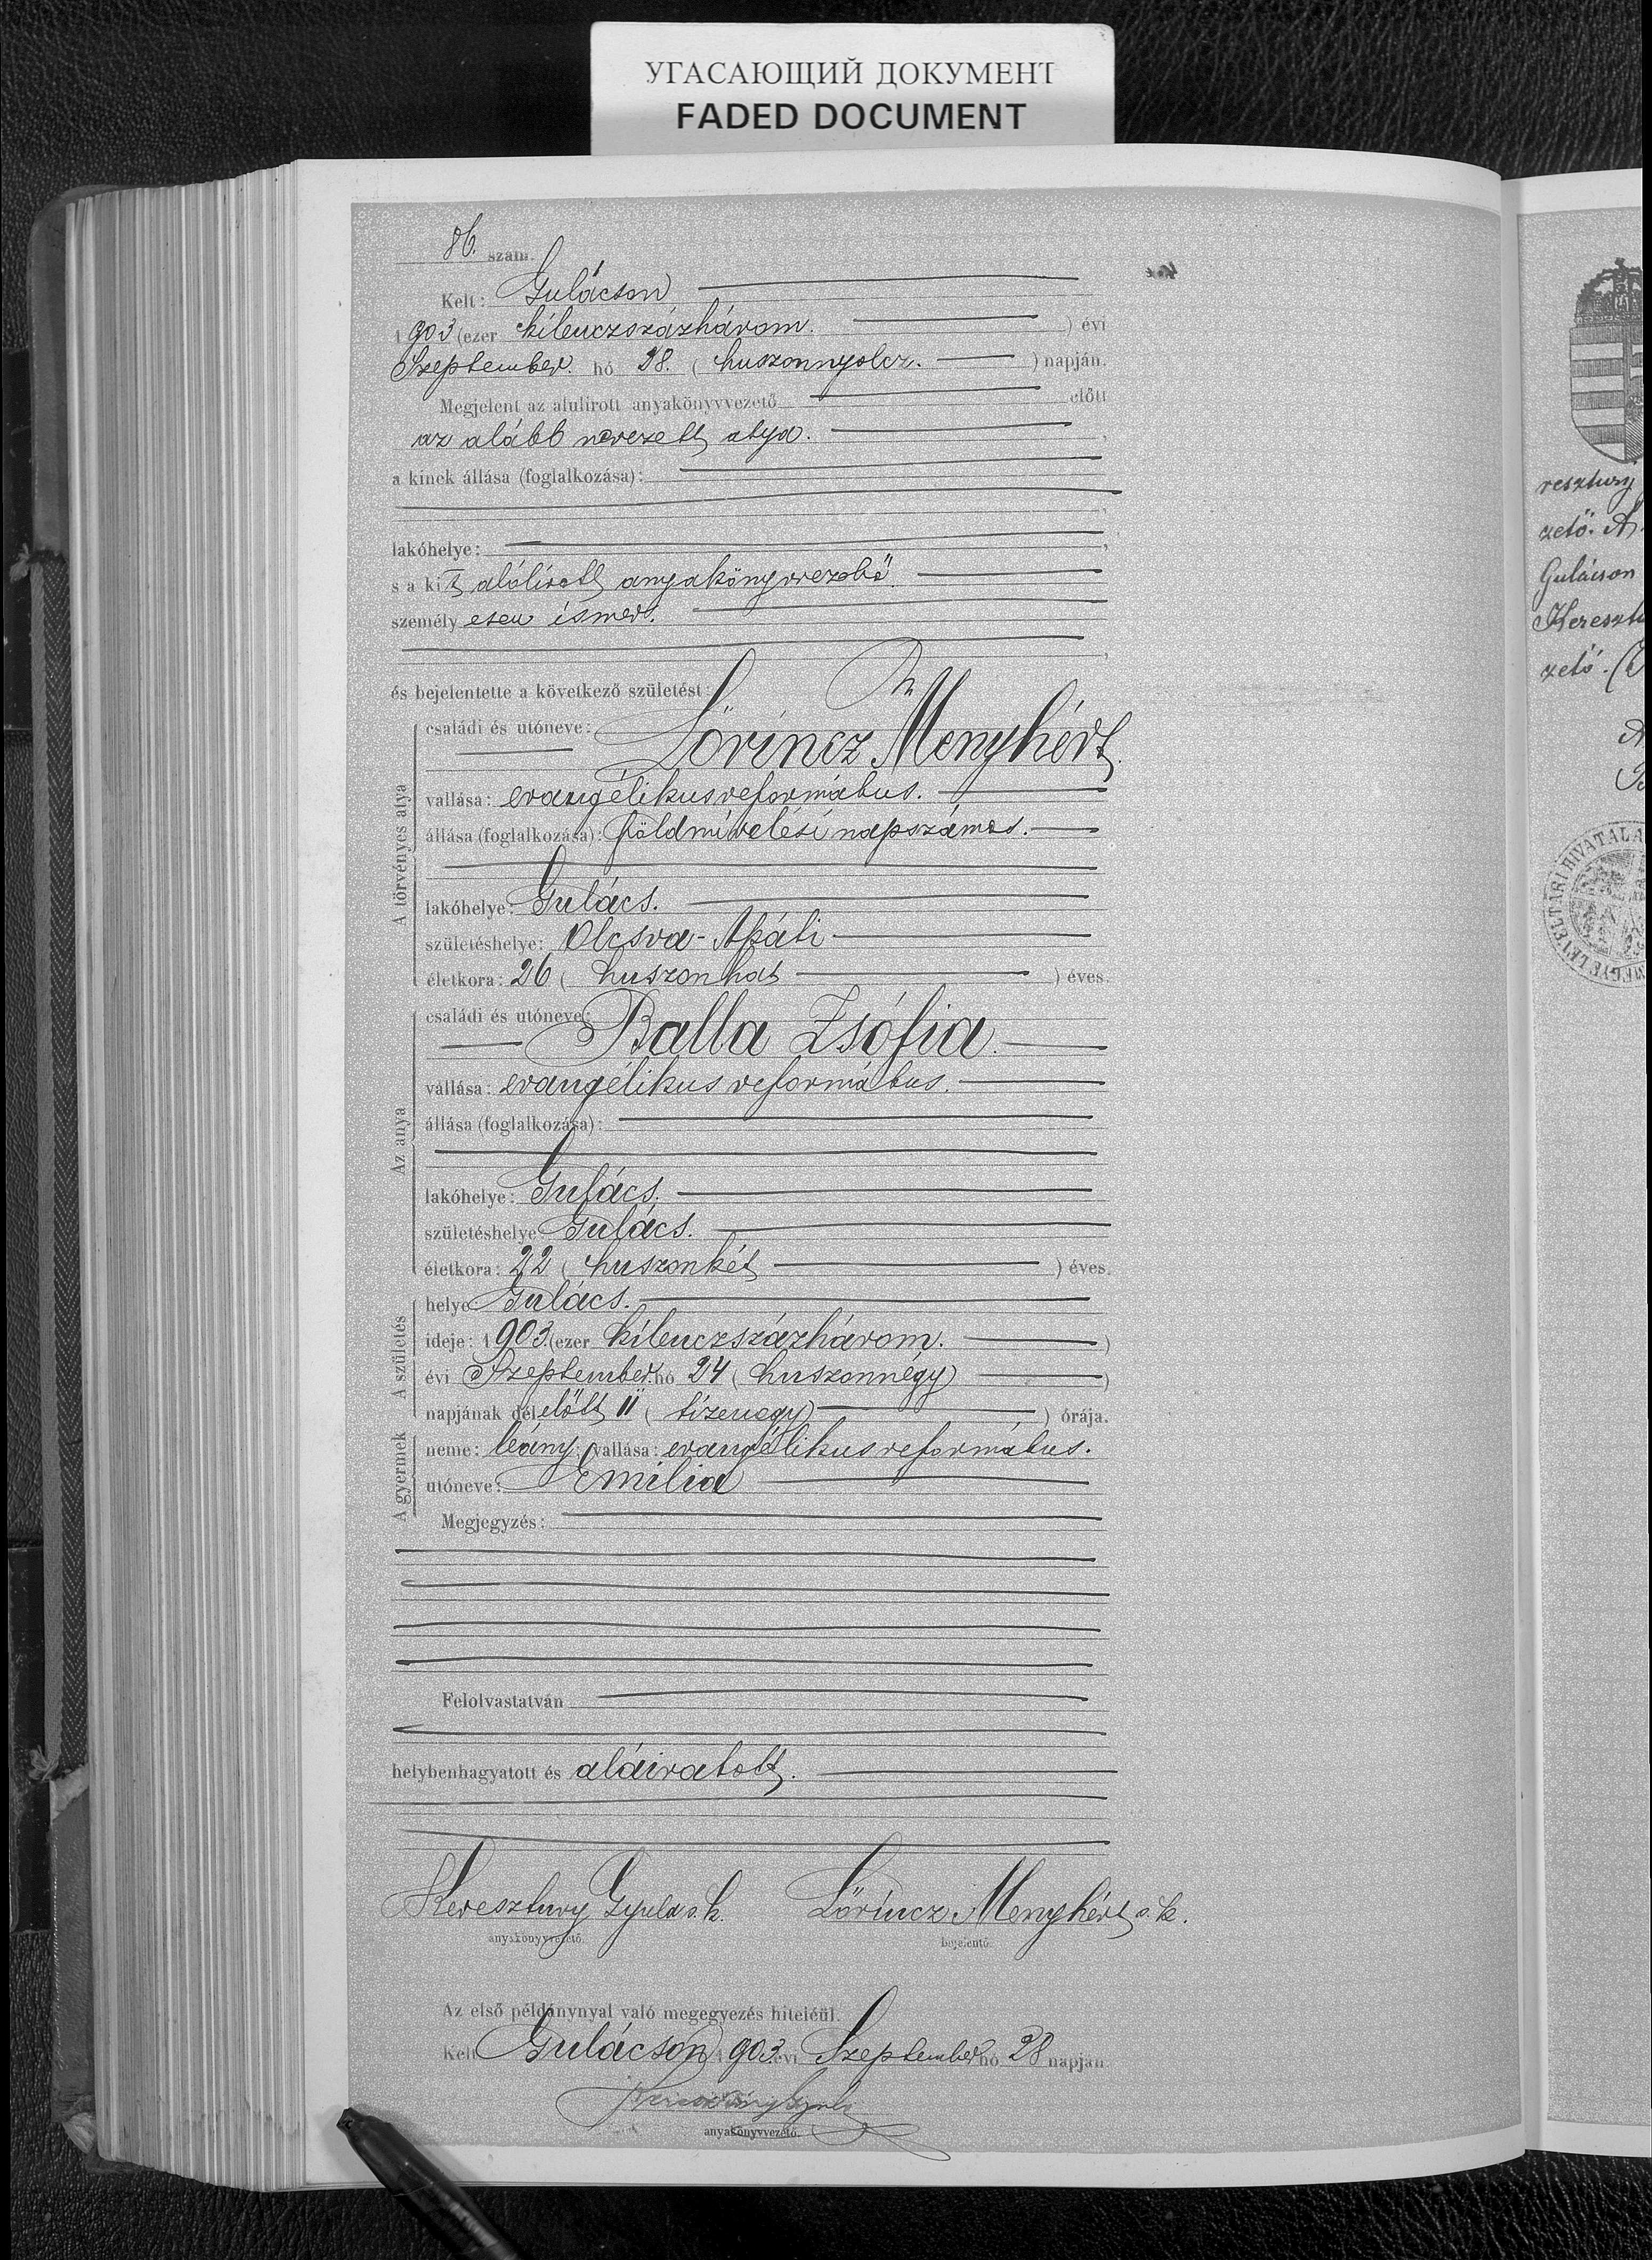 УГАСАЮЩИЙ ДОКУМЕНТ
FADED DOCUMENT
86. szám.
Kelt: Gulácson
1903 (ezer kilenczszázhárom. ) évi
Szeptember. hó 28. ( huszonnyolcz. ) napján.
Megjelent az alulirott anyakönyvvezető előtt
az alább nevezett atya.
a kinek állása (foglalkozása):
lakóhelye:
s a kit alólirott anyakönyvvezető
személyesen ismer.
és bejelentette a következő születést:
A törvényes atya
családi és utóneve:
Lőrincz Menyhért.
vallása: evangélikus református.
állása (foglalkozása): földmivelési napszámos.
lakóhelye: Gulács.
születéshelye: Olcsva-Apáti
életkora: 26 ( huszonhat ) éves.
Az anya
családi és utóneve:
Balla Zsófia.
vallása: evangélikus református.
állása (foglalkozása):
lakóhelye: Gulács.
születéshelye: Gulács.
életkora: 22 ( huszonkét ) éves.
A születés
helye: Gulács.
ideje: 1903. (ezer kilenczszázhárom. )
évi Szeptember. hó 24 ( huszonnégy )
napjának délelőtt 11 ( tizenegy ) órája.
A gyermek
neme: leány; vallása: evangélikus református.
utóneve: Emilia
Megjegyzés:
Felolvastatván
helybenhagyatott és aláiratott.
Keresztury Gyula s. k. Lőrincz Menyhért s. k.
anyakönyvvezető. bejelentő.
Az első példánynyal való megegyezés hiteléül.
Kelt Gulácson 1903. évi Szeptember hó 28 napján
Keresztury Gyula
anyakönyvvezető.
resztury
zető. A
Gulácson
Kereszt
zető. (